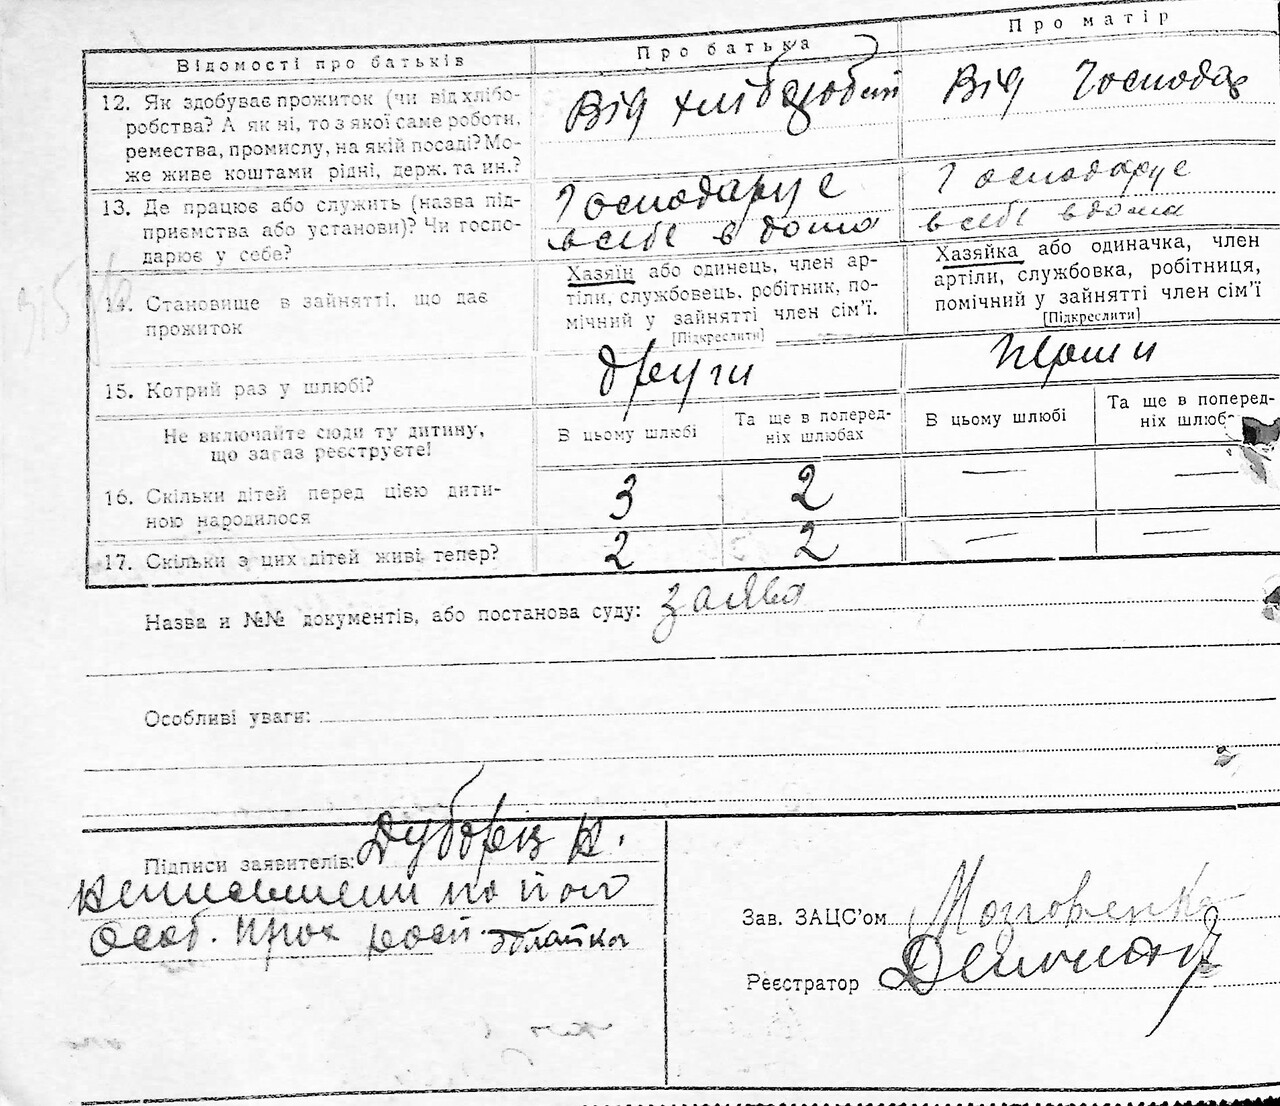 Відомості про батьків
Про батька
Про матір
12. Як здобуває прожиток (чи від хлібо-
робства? А як ні, то з якої саме роботи,
ремества, промислу, на якій посаді? Мо-
же живе коштами рідні, держ. та ин.?
Від
Від господар
13. Де працює або служить (назва під-
приємства або установи)? Чи госпо-
дарює у себе?
Господарує
в себе в дома
Господарує
в себе вдома
14. Становище в зайнятті, що дає
прожиток
Хазяїн або одинець, член ар-
тілі, службовець, робітник, по-
мічний у зайнятті член сім'ї.
[Підкреслити]
Хазяйка або одиначка, член
артіли, службовка, робітниця,
помічний у зайнятті член сім'ї
[Підкреслити]
15. Котрий раз у шлюбі?
други
перши
Не включайте сюди ту дитину,
що зараз реєструєте!
В цьому шлюбі
Та ще в поперед-
ніх шлюбах
В цьому шлюбі
Та ще в поперед-
ніх шлюбах
16. Скільки дітей перед цією дити-
ною народилося
3
2
—
—
17. Скільки з цих дітей живі тепер?
2
2
—
—
Назва и №№ документів, або постанова суду: заява
Особливі уваги:
Підписи заявителів:
Н.
особ.
Зав. ЗАЦС'ом
Реєстратор